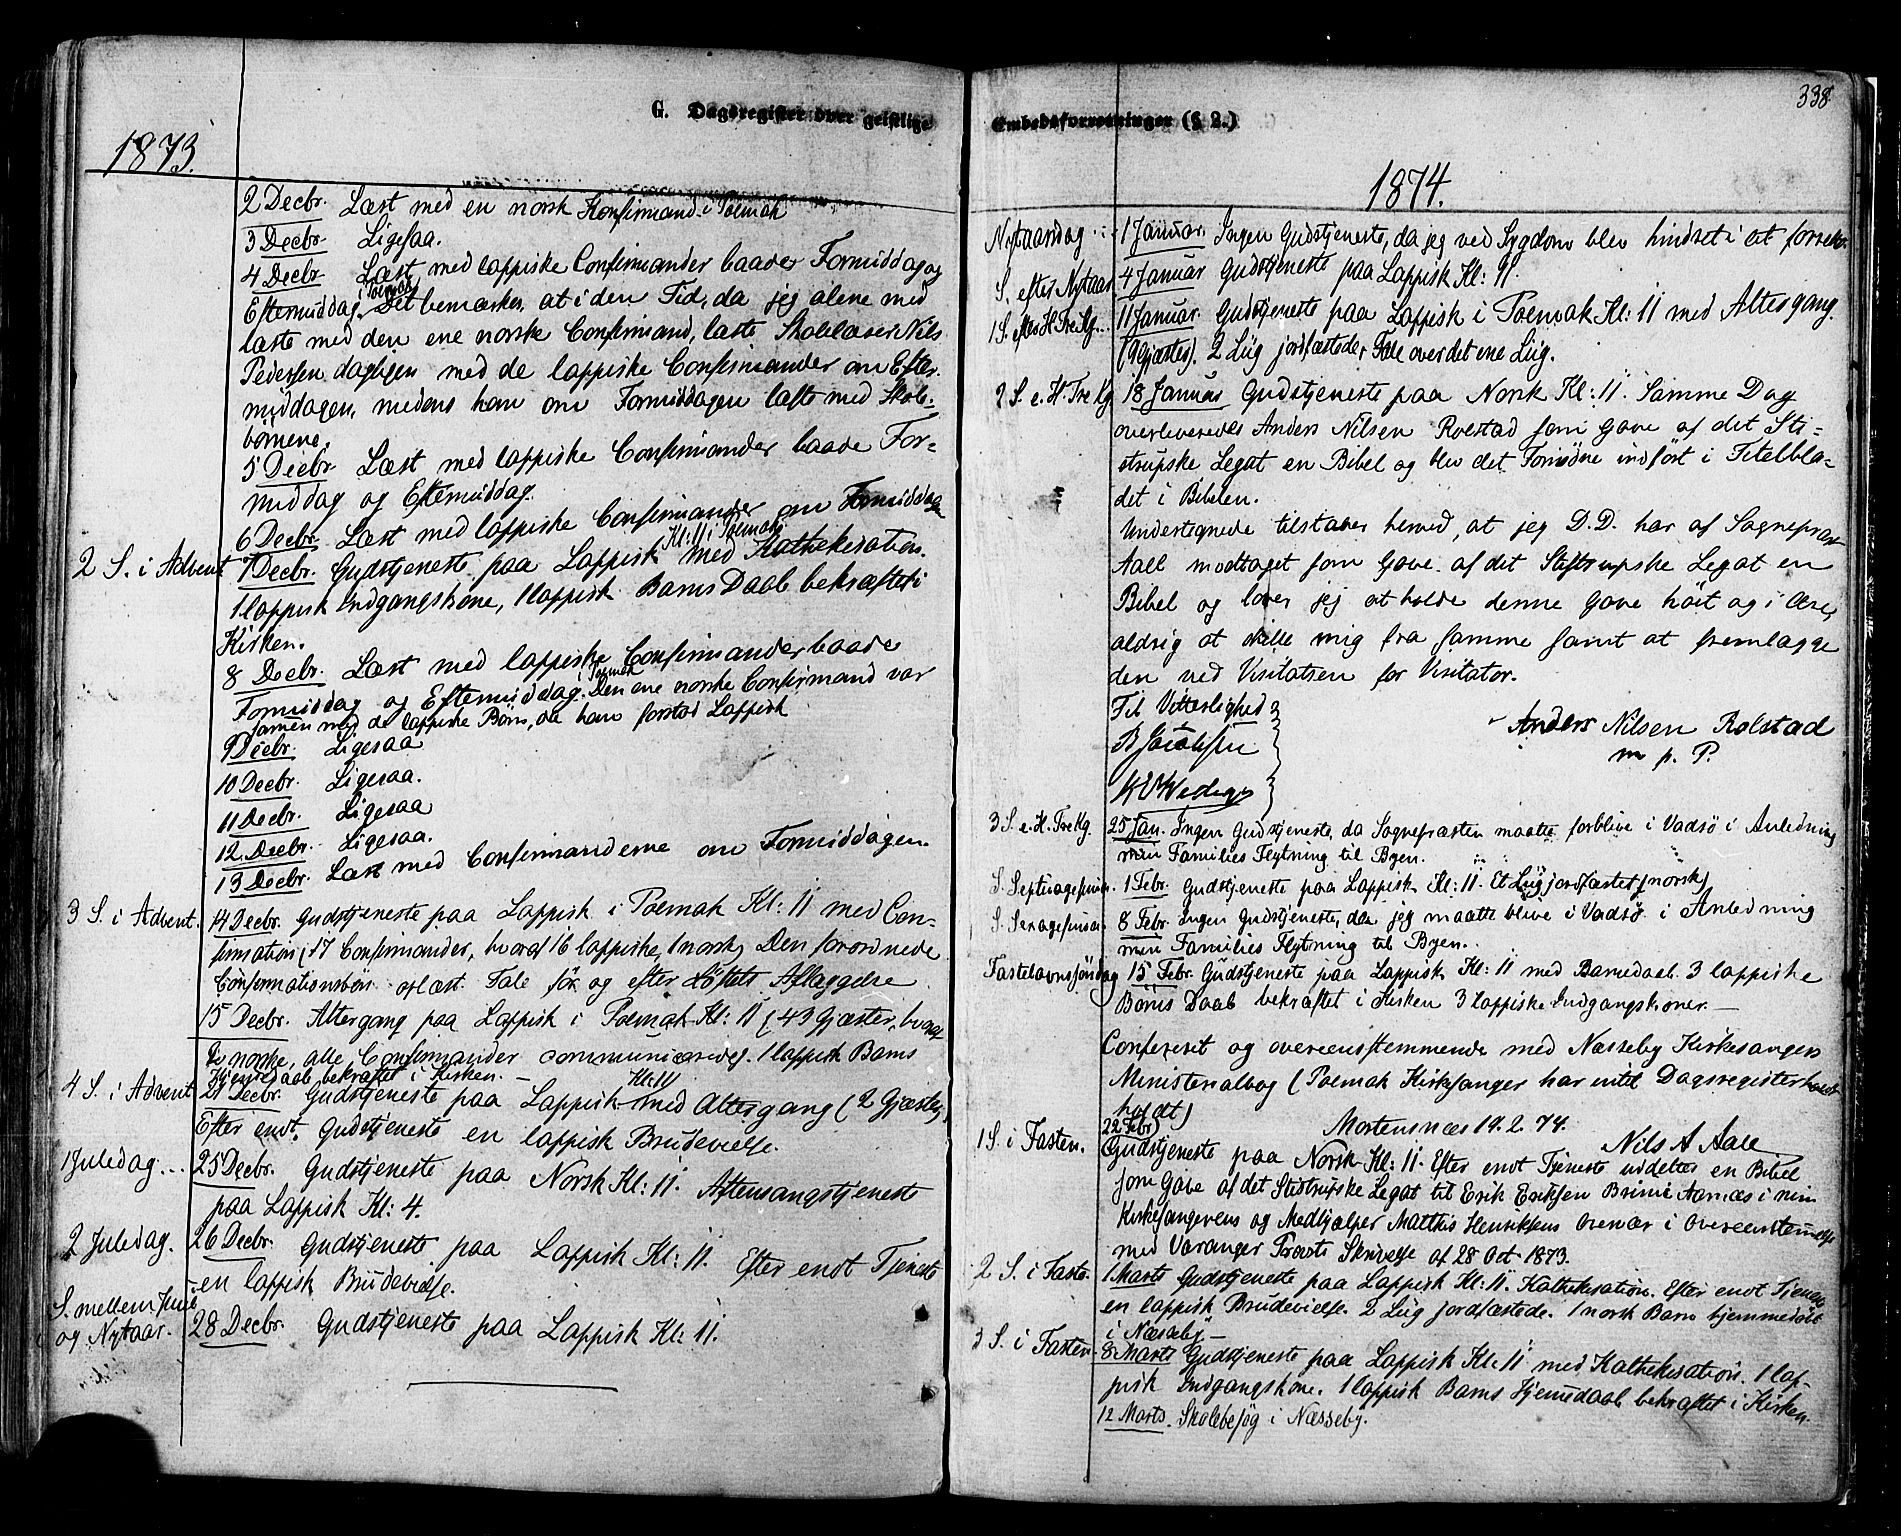 G. Dagsregister over geistlige
1873.
2 Decbr. Læst med en norsk Konfirmand i Polmak
3 Decbr. Ligesaa.
4 Decbr. Læst med lappiske Confirmander baade Formiddag og
Eftermiddag i Polmak. Det bemærkes, at i den Tid, da jeg alene med
læste med den ene norske Confirmand, læste Skolelærer Nils
Pedersen dagligen med de lappiske Confirmander om Efter-
middagen, medens han om Formiddagen læste med Skole-
börnene.
5 Decbr. Læst med lappiske Confirmander baade For-
middag og Eftermiddag.
6 Decbr. Læst med lappiske Confirmander om Formiddag
2 S. i Advent 7 Decbr. Gudstjeneste paa Lappisk Kl: 11 i Polmak med Kathekisation.
1 lappisk Indgangskone, 1 lappisk Barns Daab bekræftet i
Kirken.
8 Decbr. Læst med lappiske Confirmander baade
Formiddag og Eftermiddag i Polmak. Den ene norske Confirmand var
sammen med de lappiske Börn, da han forstod Lappisk
9 Decbr. Ligesaa
10 Decbr. Ligesaa.
11 Decbr. Ligesaa
12 Decbr. Ligesaa.
13 Decbr. Læst med Confirmanderne om Formiddagen.
3 S. i Advent. 14 Decbr. Gudstjeneste paa Lappisk i Polmak Kl: 11 med Con-
firmation (17 Confirmander, hvoraf 16 lappiske, 1 norsk) Den forordnede
Confirmationsbön oplæst. Tale för og efter Löftets Aflæggelse
15 Decbr. Altergang paa Lappisk i Polmak Kl: 11 (43 Gjæster, hvoraf
2 norske, alle Confirmander communicerede). 1 lappisk Barns
Hjemmedaab bekræftet i Kirken.
4 S. i Advent 21 Decbr. Gudstjeneste paa Lappisk Kl: 11 med Altergang (2 Gjæster)
Efter endt Gudstjeneste en lappisk Brudevielse.
1 Juledag... 25 Decbr. Gudstjeneste paa Norsk Kl: 11. Aftensangstjeneste
paa Lappisk Kl: 4.
2 Juledag. 26 Decbr. Gudstjeneste paa Lappisk Kl: 11. Efter endt Tjeneste
en lappisk Brudevielse.
S. mellem Juul
og Nytaar. 28 Decbr. Gudstjeneste paa Lappisk Kl: 11.
338
Embedsforretninger (§ 2.)
1874.
Nytaarsdag... 1 Januar. Ingen Gudstjeneste, da jeg ved Sygdom blev hindret i at forrette
S. efter Nytaar 4 Januar Gudstjeneste paa Lappisk Kl: 11
1 S. efter H. Tre Kg... 11 Januar. Gudstjeneste paa Lappisk i Polmak Kl: 11 med Altergang.
(9 Gjæster). 2 Liig jordfæstede, Tale over det ene Liig.
2 S. e. H. Tre Kg 18 Januar Gudstjeneste paa Norsk Kl: 11. Samme Dag
overleveredes Anders Nilsen Rolstad som Gave af det Sti-
strupske Legat en Bibel og blev det Fornödne indfört i Titelbla-
det i Bibelen.
Undertegnede tilstaaer herved, at jeg D.D. har af Sognepræst
Aall modtaget som Gave af det Stiftrupske Legat en
Bibel og lover jeg at holde denne Gave höit og i Ære,
aldrig at skille mig fra samme samt at fremlægge
den ved Visitatsen for Visitator.
Til Vitterlighed
Anders Nilsen Rolstad
B Jacobsen
m p. P.
3 S. e. H. Tre Kg. 25 Jan. Ingen Gudstjeneste, da Sognepræsten maatte forblive i Vadsö i Anledning
min Families Flytning til Byen.
S. Septuagesima. 1 Febr. Gudstjeneste paa Lappisk Kl: 11. Et Liig jordfæstet (norsk)
S. Sexagesima. 8 Febr Ingen Gudstjeneste, da jeg maatte blive i Vadsö i Anledning
min Families Flytning til Byen.
Fastelavnssöndag 15 Febr. Gudstjeneste paa Lappisk Kl: 11 med Barnedaab. 3 lappiske
Börns Daab bekræftet i Kirken 3 lappiske Indgangskoner.—
Confereret og overeensstemmende med Næsseby Kirkesangers
Ministerialbog (Polmak Kirkesanger har intet Dagsregister holdt
holdt)
Mortensnæs 19. 2. 74.
Nils A Aall
1 S. i Fasten. 22 Febr
Gudstjeneste paa Norsk Kl: 11. Efter endt Tjeneste uddeltes en Bibel
som Gave af det Stistrupske Legat til Erik Eriksen Aarnæs i min
Kirkesangerens og Medhjælper Mathis Henriksens Overvær i Overeenstemmelse
med Varanger Provsts Skrivelse af 28 Oct. 1873.
2 S. i Faste. 1 Marts Gudstjeneste paa Lappisk Kl: 11. Kathekisation. Efter endt Tjeneste
en lappisk Brudevielse. 2 Liig jordfæstede. 1 norsk Barn hjemmedöbt
i Næsseby —
3 S. i Fasten 8 Marts Gudstjeneste paa Lappisk Kl: 11 med Kathekisation. 1 lap-
pisk Indgangskone. 1 lappisk Barns Hjemmedaab bekræftet i Kirken.
12 Marts. Skolebesög i Næsseby.